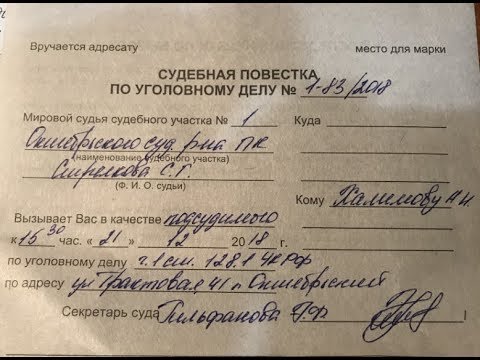 Вручается адресату место для марки
СУДЕБНАЯ ПОВЕСТКА
ПО УГОЛОВНОМУ ДЕЛУ № 1-83/2018
Мировой судья судебного участка № 1 Куда
Октябрьского суд. р-на ПК
(наименование судебного участка)
Стрелкова С.Г.
(Ф. И. О. судьи)
Кому Халимову А Н
Вызывает Вас в качестве подсудимого
к 15 30 час. « 21 » 12 2018 г.
по уголовному делу ч.1 ст. 128.1 УК РФ
по адресу ул Трактовая 41 п Октябрьский
Секретарь суда Гильфанова Г.Ф.